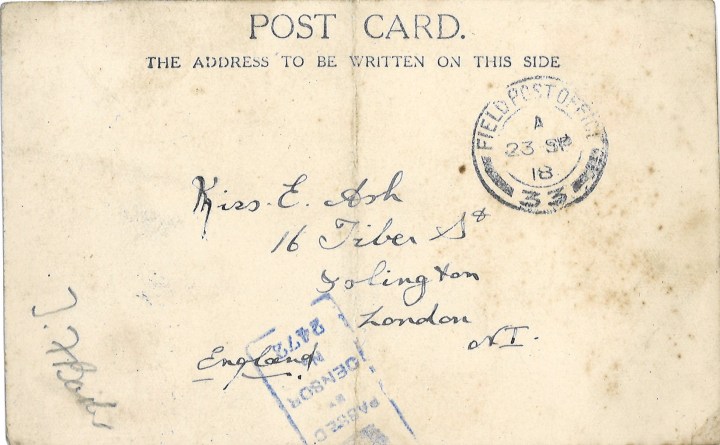 POST CARD.
THE ADDRESS TO BE WRITTEN ON THIS SIDE
FIELD POST OFFICE
A
23 SP
18
33
Miss E. Ash
16 Tiber St
Islington
London
N1.
England
PASSED
BY
CENSOR
No
2472
J.